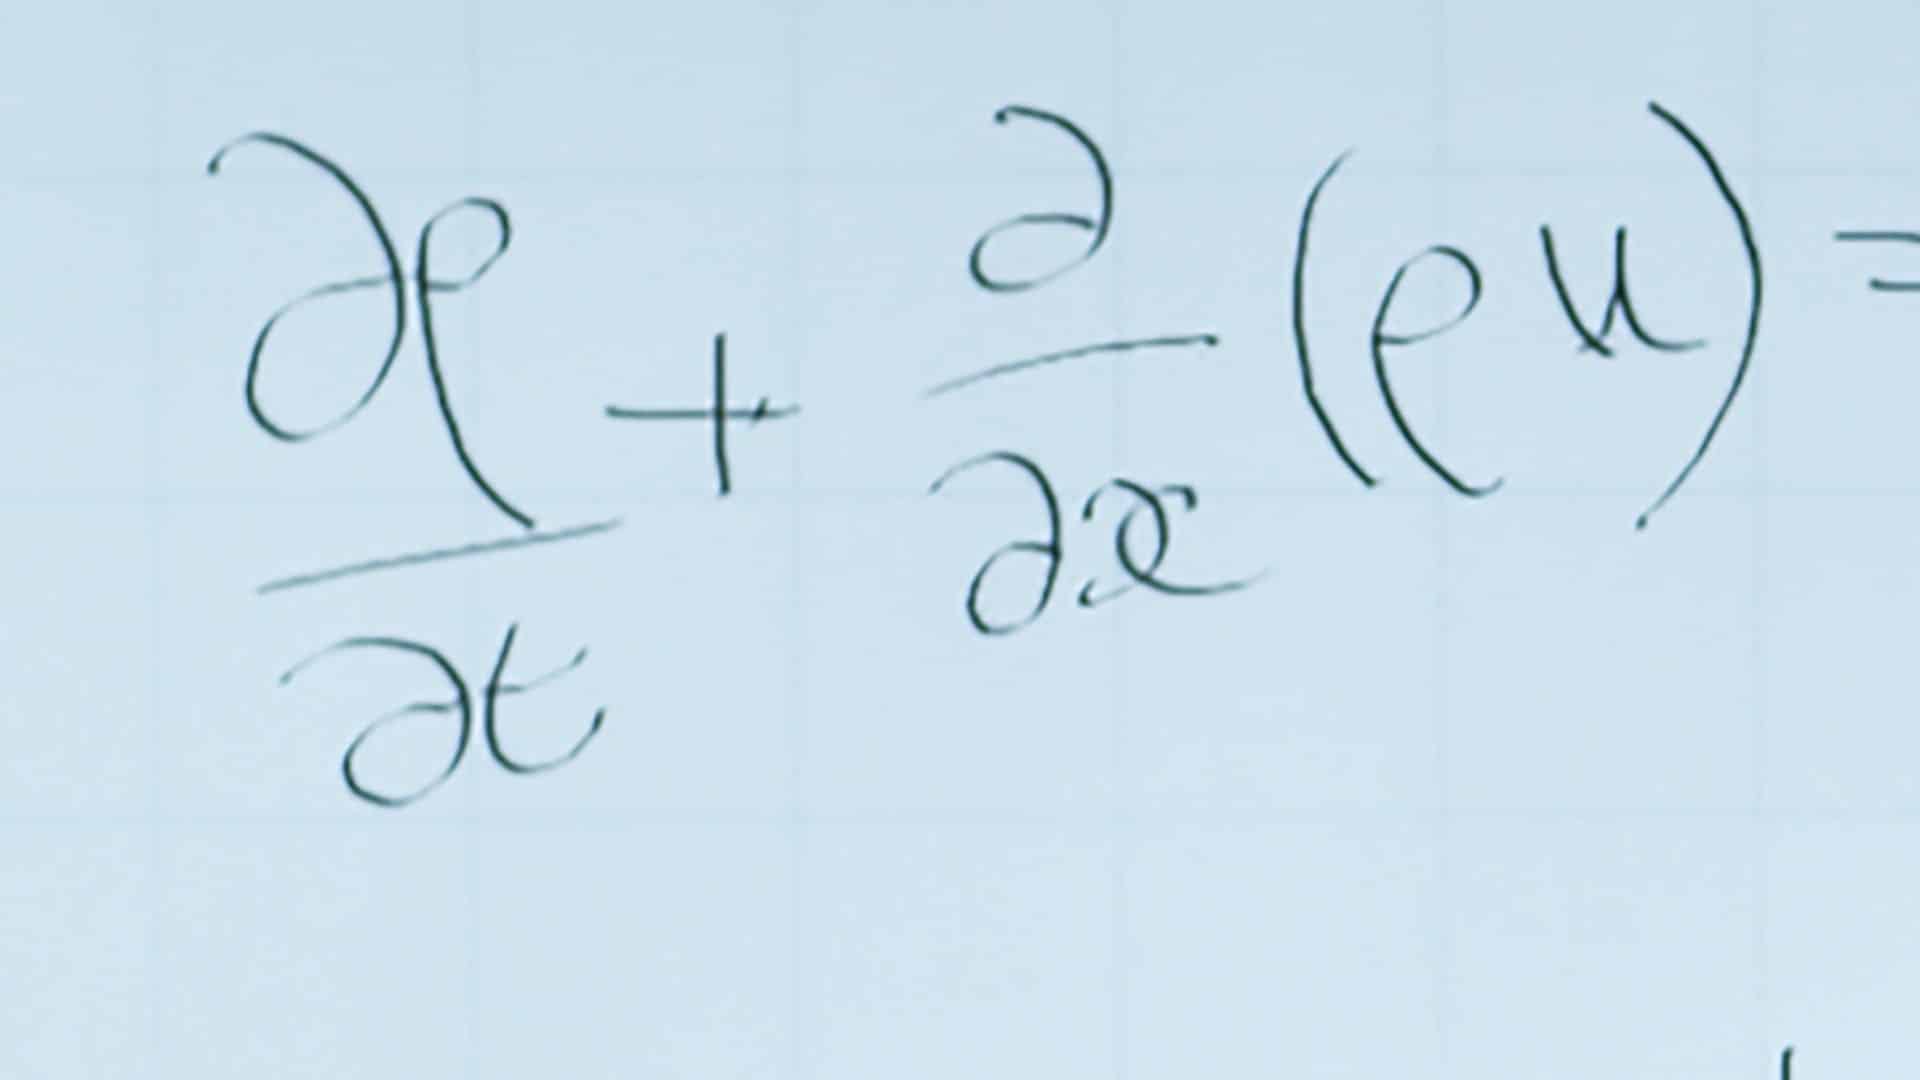 ∂ρ/∂t + ∂/∂x (ρu) =